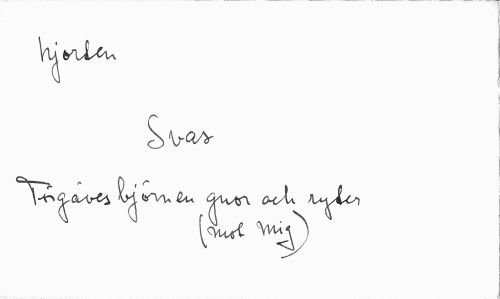 hjorden
Svas
Förgäves björnen gnor och ryter
(mot mig)